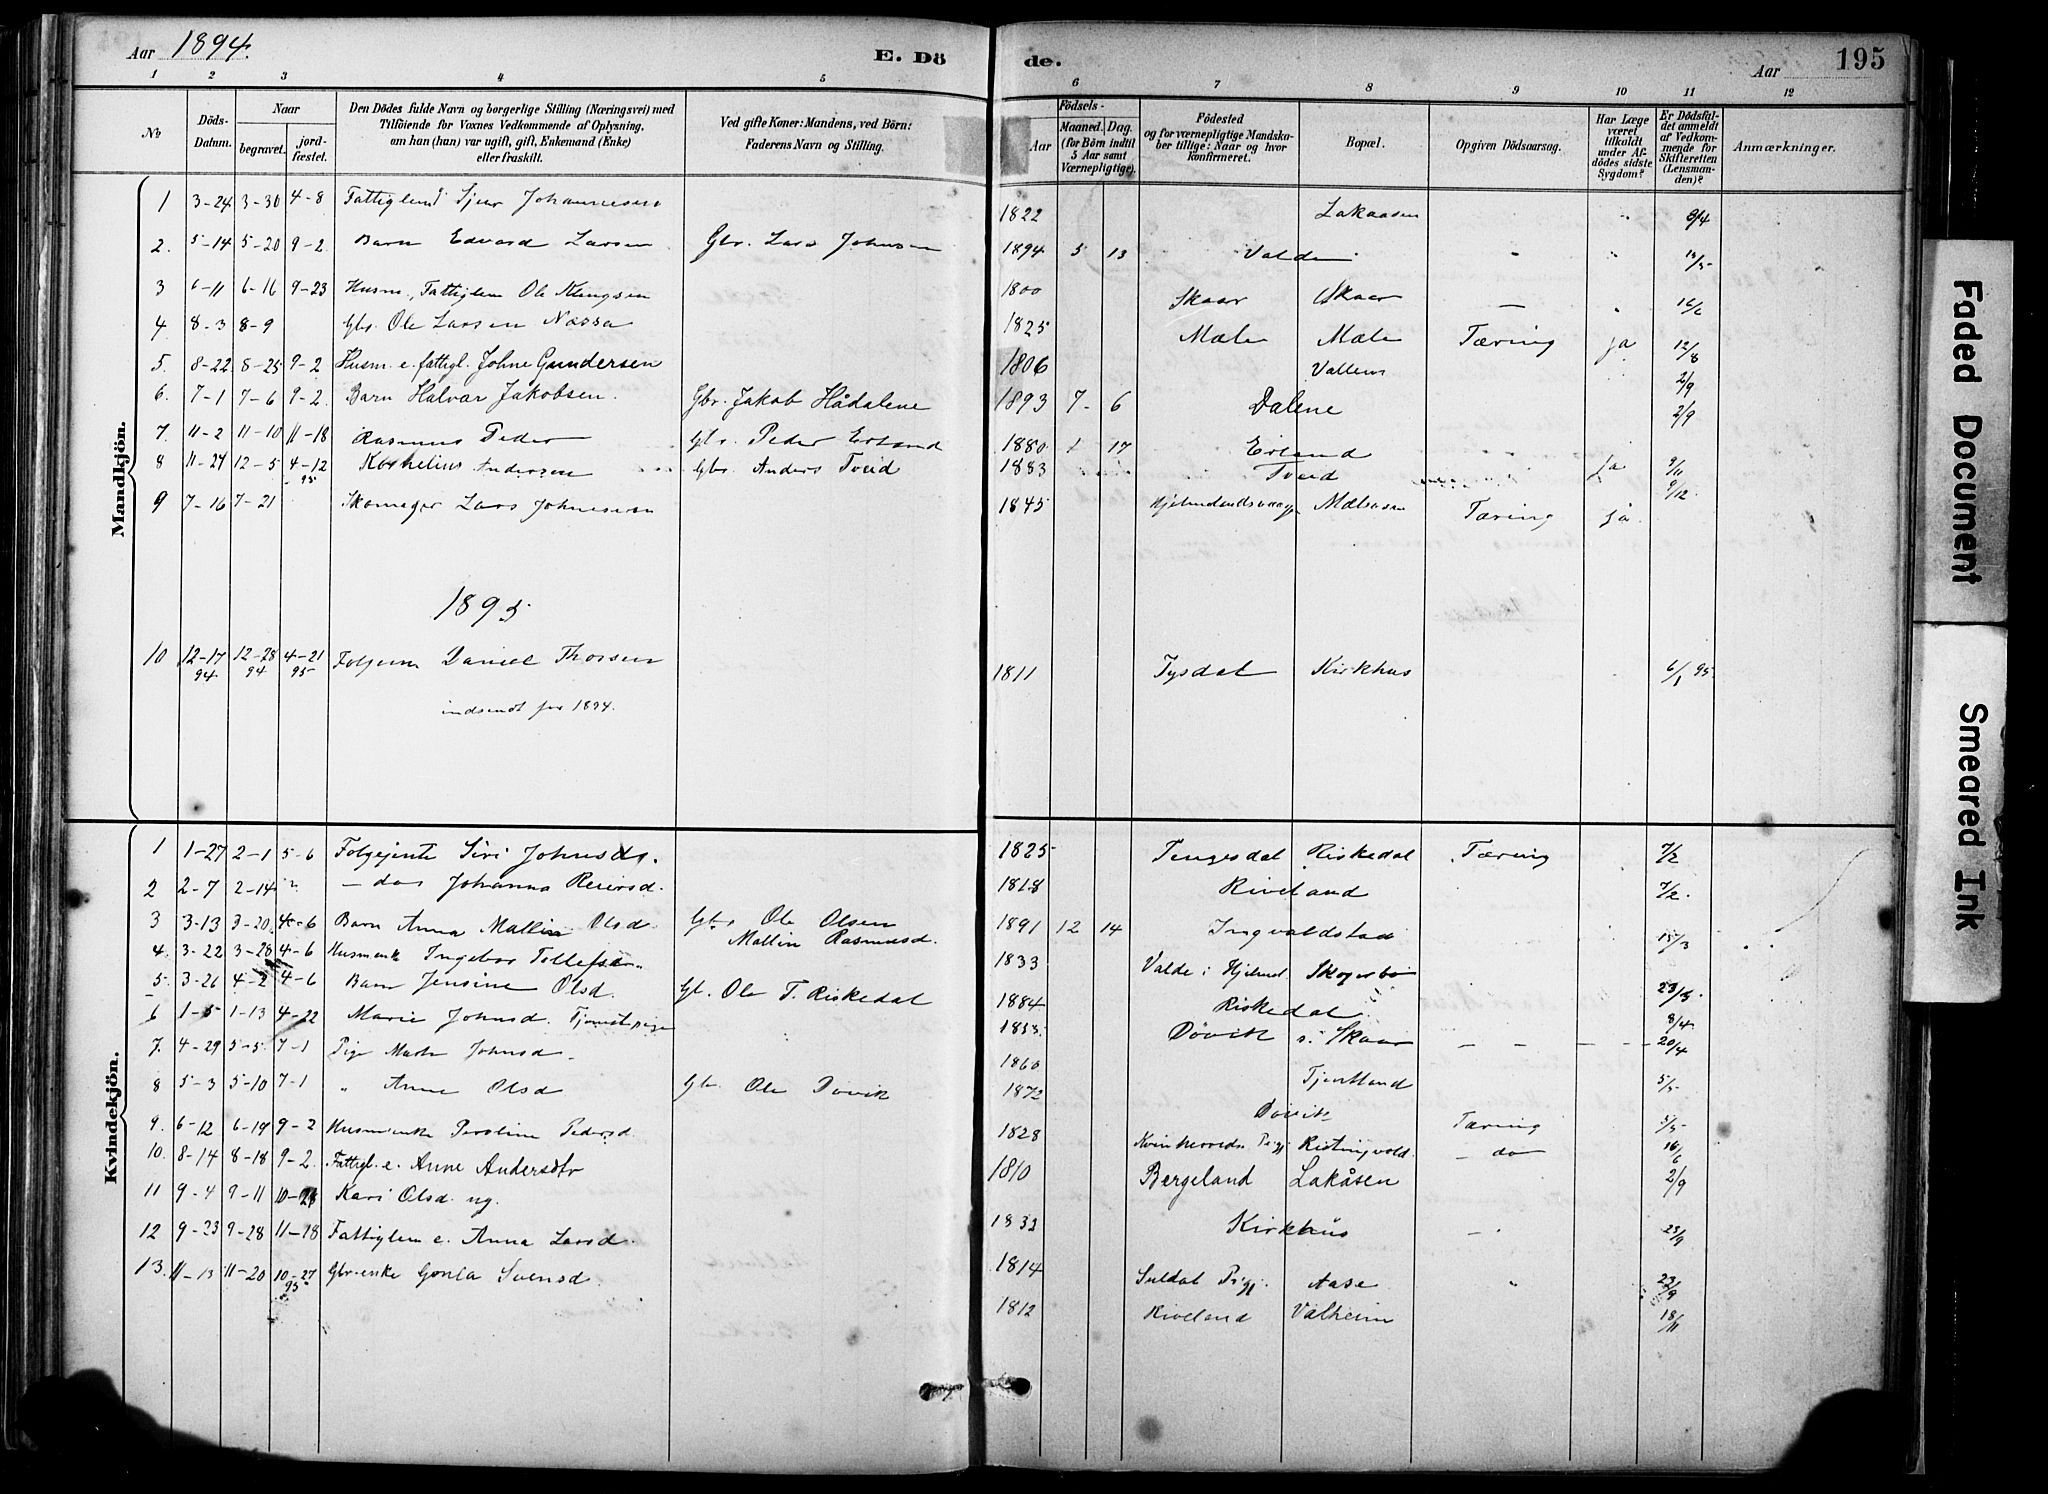 Aar 1894.
E. Dö
de.
Aar
195
1 2 3 4 5 6 7 8 9 10 11 12
No
Döds-Datum.
Naar
begravet.
jordfæstet.
Den Dödes fulde Navn og borgerlige Stilling (Næringsvei) med
Tilföiende for Voxnes Vedkommende af Oplysning,
om han (hun) var ugift, gift, Enkemand (Enke)
eller fraskilt.
Ved gifte Koner: Mandens, ved Börn:
Faderens Navn og Stilling.
Födsels-
Aar
Maaned. Dag.
(for Börn indtil
5 Aar samt
Værnepligtige).
Födested
og for værnepligtige Mandskaber tillige: Naar og hvor
konfirmeret.
Bopæl.
Opgiven Dödsaarsag.
Har Læge
været
tilkaldt
under Afdödes sidste
Sygdom?
Er Dödsfaldet anmeldt
af Vedkommende for
Skifteretten
(Lensmanden)?
Anmærkninger.
Mandkjön.
1 3-24 3-30 4-8 Fattiglem Sjur Johannesen 1822 Lakaasen 8/4
2. 5-14 5-20 9-2 Barn Edvard Larsen Gbr. Lars Johnsen 1894 5 13 Valde
3 6-11 6-16 9-23 Husm., Fattiglem Ole 1800 Skaar Skaar — 16/6
4 8-3 8-9 Gbr. Ole Larsen Næssa 1825 Mæle Mæle Tæring ja 12/8
5. 8-22 8-25 9-2 Husm. e. fattigl. Johne Gundersen 1806 2/9
6. 7-1 7-6 9-2 Barn Halvar Jakobsen. Gbr. Jakob Hådalene 1893 7- 6 Dalene 2/9
7. 11-2 11-10 11-18 Rasmus Peder Gbr. Peder Erland 1880 17 Erland
8 11-24 12-5 4-12 95 Kornelius Andersen Gbr. Anders Tveid 1883 Tveid ja 9/12
9 7-16 7-21 Skomager Lars Johnsen 1845 Mælsosen Tæring ja
1895
10 12-17 94 12-28 94 4-21 95 Folgem Daniel Thorsen 1811 Tysdal Kirkhus 6/1 95.
indsendt for 1894.
Kvindekjön.
1 1-27 2-1 5-6 Folgejente Siri Johnsdtr. 1825 Tengesdal Riskedal Tæring 7/2
2 2-7 2-14 " — das Johanna Reiersd. 1818 Riveland 7/2.
3 3-13 3-20 4-6 Barn Anna Mallin Olsd. Gbr Ole Olsen Mallin Rasmusd. 1891 12 14 Ingvaldstad 15/3
4. 3-22 3-28 4-6 Husmenk Ingebor 1833 Valde i Hjelmel. Skogerbø
5. 3-26 4-2 4-6 Barn Jensine Olsd. Gb. Ole T. Riskedal 1884 Riskedal 8/4
6 1-5 1-13 4-22 Marie Johnsd. Tjenestpige Døvik s. Skaar — — — — 20/4
7. 4-29 5-5 7-1 Pige Johnsd. 1860 Tjentland 5/5
8 5-3 5-10 7-1 " Anne Olsd Gbr. Ole Dovik 1872 Dövik Tæring 5/5
9. 6-12 6-19 9-2 Husmenke Persline Pedersd. 1828 — do 16/6
10. 8-14 8-18 9-2. Fattigl. e. Anne Andersdtr 1810 Bergeland Lakåsen 2/9
11 9-4 9-11 10-28 Kari Olsd. ug. 1832 Kirkhus 23/9
12 9-23 9-28 11-18 Fattiglem e. Anna Larsd. 1814 Suldal Aase 23/9
13. 11-13 11-20 10-27 95 Gbr-enke Gonla Svensd. 1812 Riveland Valheim 18/11
Faded Document
Smeared Ink